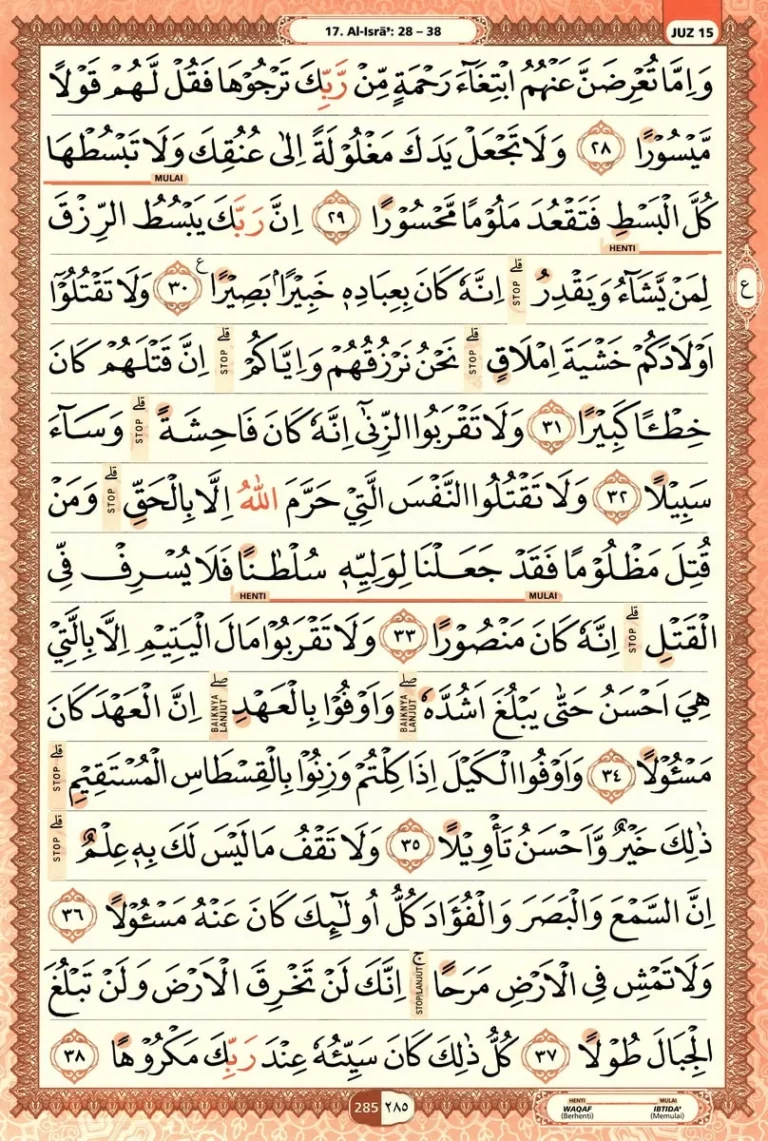 17. Al-Isrā': 28 – 38
JUZ 15
وَاِمَّا تُعْرِضَنَّ عَنْهُمُ ابْتِغَاۤءَ رَحْمَةٍ مِّنْ رَّبِّكَ تَرْجُوْهَا فَقُلْ لَّهُمْ قَوْلًا
مَّيْسُوْرًا ٢٨ وَلَا تَجْعَلْ يَدَكَ مَغْلُوْلَةً اِلٰى عُنُقِكَ وَلَا تَبْسُطْهَا
MULAI
كُلَّ الْبَسْطِ فَتَقْعُدَ مَلُوْمًا مَّحْسُوْرًا ٢٩ اِنَّ رَبَّكَ يَبْسُطُ الرِّزْقَ
HENTI
لِمَنْ يَّشَاۤءُ وَيَقْدِرُ ۗ STOP اِنَّهٗ كَانَ بِعِبَادِهٖ خَبِيْرًاۢ بَصِيْرًا ࣖ ٣٠ وَلَا تَقْتُلُوْٓا
ع
اَوْلَادَكُمْ خَشْيَةَ اِمْلَاقٍ ۗ STOP نَحْنُ نَرْزُقُهُمْ وَاِيَّاكُمْ ۗ STOP اِنَّ قَتْلَهُمْ كَانَ
خِطْـًٔا كَبِيْرًا ٣١ وَلَا تَقْرَبُوا الزِّنٰىٓ اِنَّهٗ كَانَ فَاحِشَةً ۗ STOP وَسَاۤءَ
سَبِيْلًا ٣٢ وَلَا تَقْتُلُوا النَّفْسَ الَّتِيْ حَرَّمَ اللّٰهُ اِلَّا بِالْحَقِّ ۗ STOP وَمَنْ
قُتِلَ مَظْلُوْمًا فَقَدْ جَعَلْنَا لِوَلِيِّهٖ سُلْطٰنًا فَلَا يُسْرِفْ فِّى
MULAI HENTI
الْقَتْلِ ۗ STOP اِنَّهٗ كَانَ مَنْصُوْرًا ٣٣ وَلَا تَقْرَبُوْا مَالَ الْيَتِيْمِ اِلَّا بِالَّتِيْ
هِيَ اَحْسَنُ حَتّٰى يَبْلُغَ اَشُدَّهٗ ۖ BAIKNYA LANJUT وَاَوْفُوْا بِالْعَهْدِ ۖ BAIKNYA LANJUT اِنَّ الْعَهْدَ كَانَ
مَسْـُٔوْلًا ٣٤ وَاَوْفُوا الْكَيْلَ اِذَا كِلْتُمْ وَزِنُوْا بِالْقِسْطَاسِ الْمُسْتَقِيْمِ ۗ STOP
ذٰلِكَ خَيْرٌ وَّاَحْسَنُ تَأْوِيْلًا ٣٥ وَلَا تَقْفُ مَا لَيْسَ لَكَ بِهٖ عِلْمٌ ۗ STOP
اِنَّ السَّمْعَ وَالْبَصَرَ وَالْفُؤَادَ كُلُّ اُولٰۤىِٕكَ كَانَ عَنْهُ مَسْـُٔوْلًا ٣٦
وَلَا تَمْشِ فِى الْاَرْضِ مَرَحًا ۚ STOP/LANJUT اِنَّكَ لَنْ تَخْرِقَ الْاَرْضَ وَلَنْ تَبْلُغَ
الْجِبَالَ طُوْلًا ٣٧ كُلُّ ذٰلِكَ كَانَ سَيِّئُهٗ عِنْدَ رَبِّكَ مَكْرُوْهًا ٣٨
285 ٢٨٥
HENTI MULAI
WAQAF IBTIDA'
(Berhenti) (Memulai)